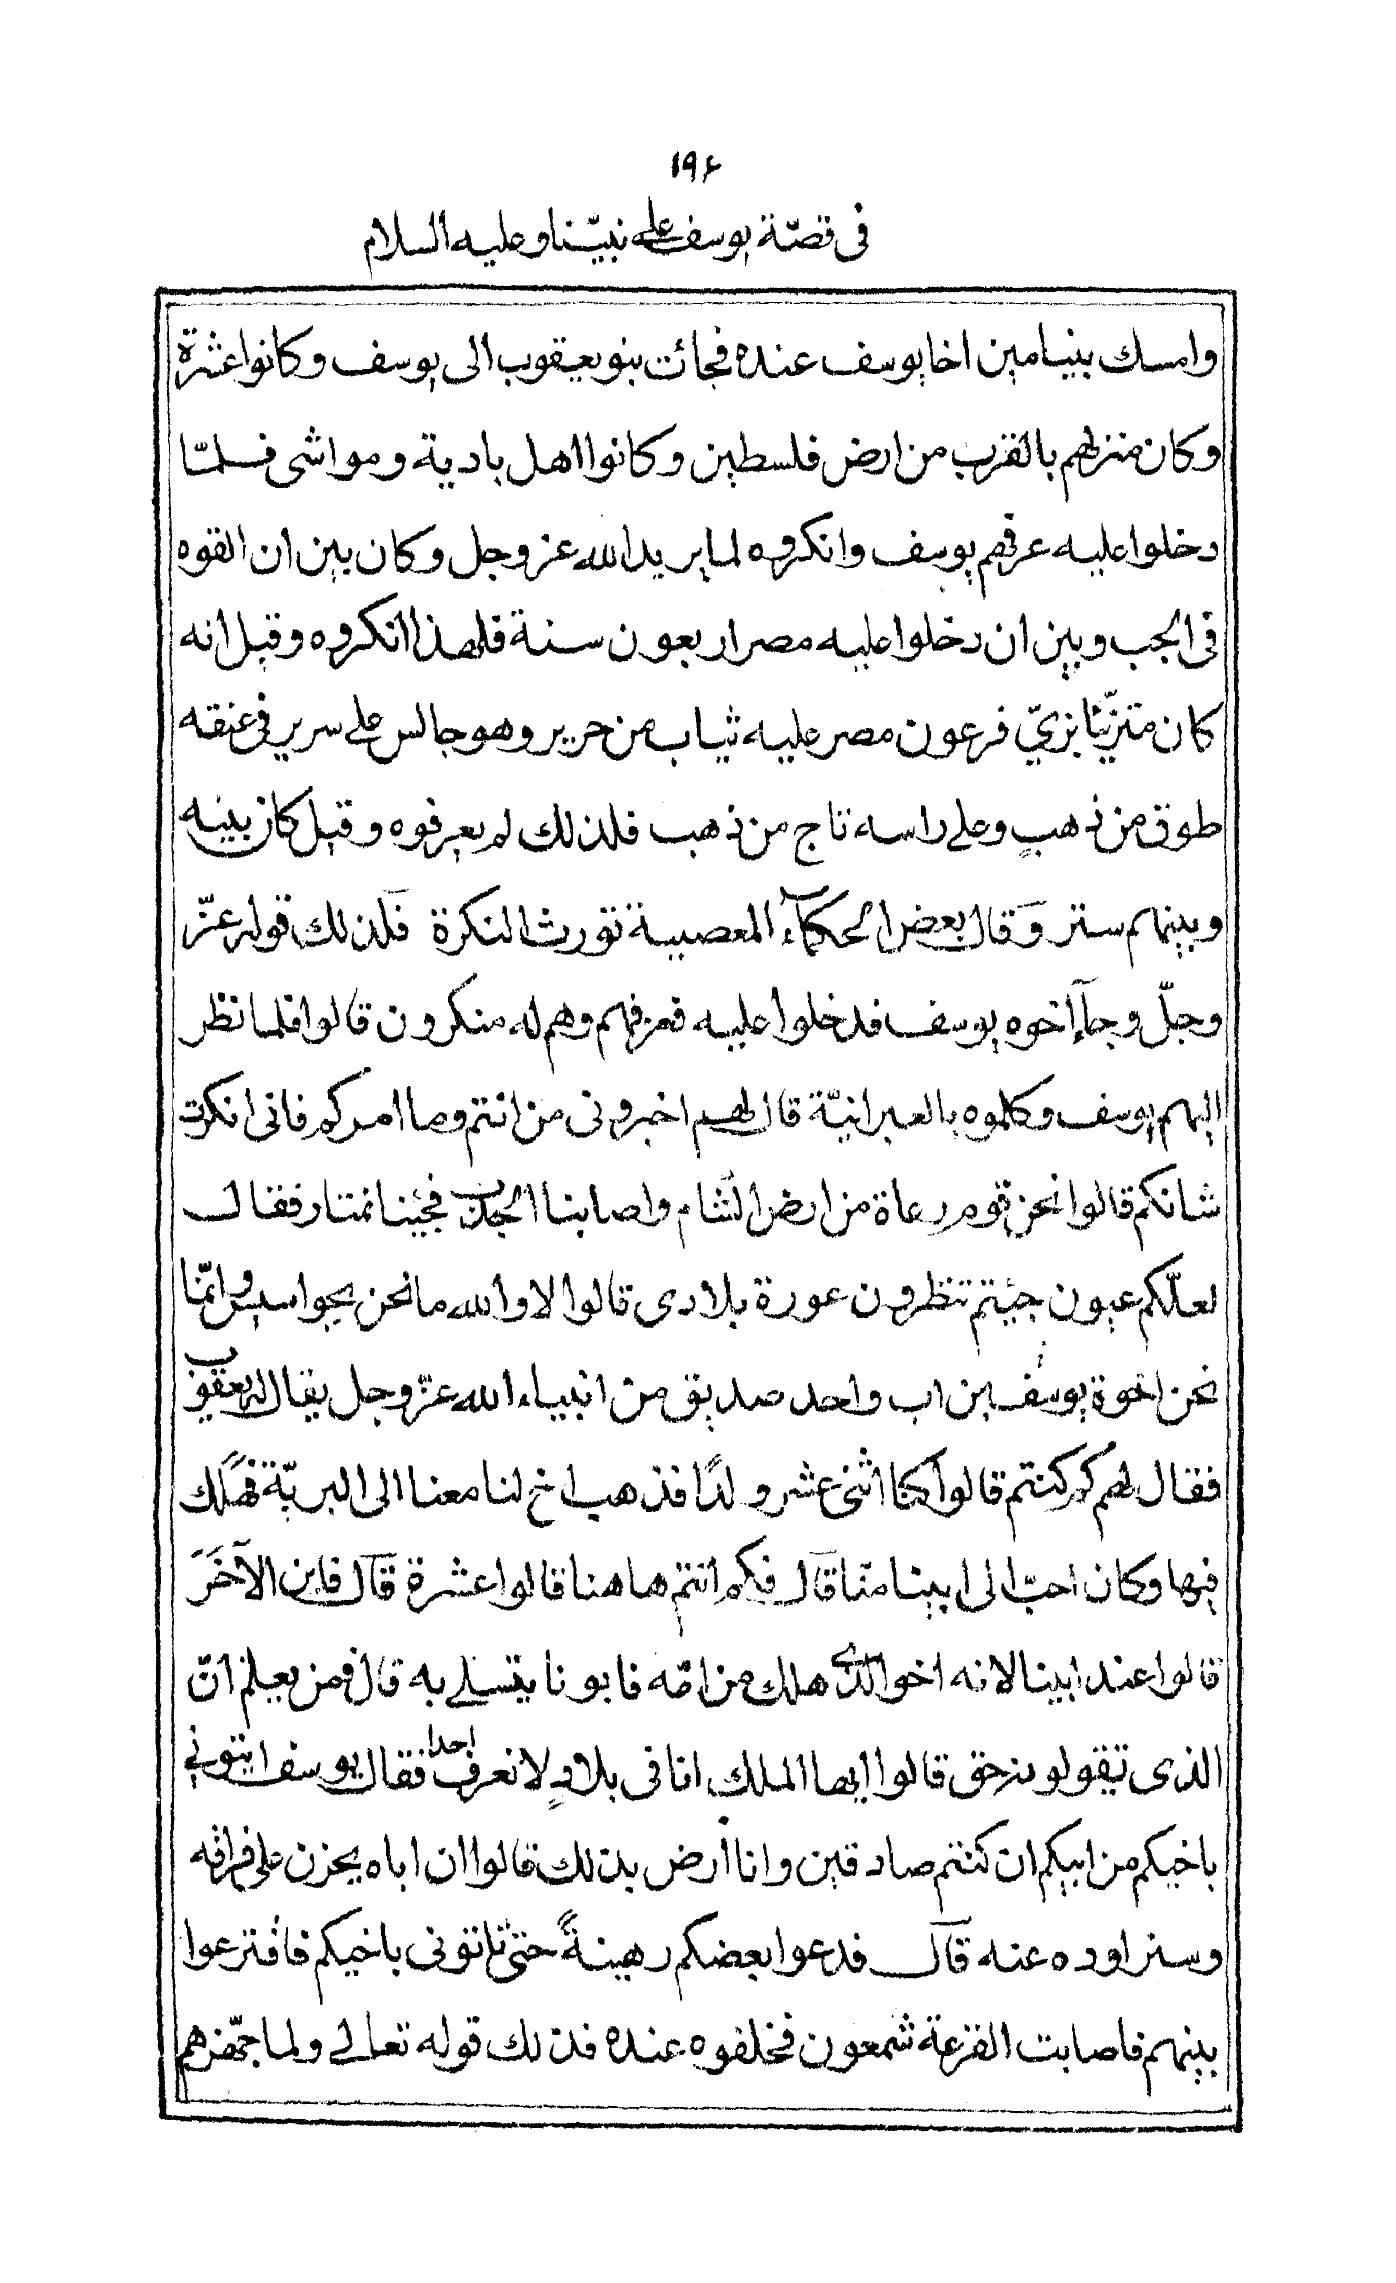 ١٩۶
فى قصّة يوسف على نبيّنا وعليه السلام
وامسك بنيامين اخا يوسف عنده فجائت بنو يعقوب الى يوسف وكانوا عشرة
وكان منزلهم بالقرب من ارض فلسطين وكانوا اهل بادية ومواشى فلمّا
دخلوا عليه عرفهم يوسف وانكروه لما يريد الله عز وجل وكان بين ان القوه
فى الجب وبين ان دخلوا عليه مصر اربعون سنة فلهذا انكروه وقيل انه
كان متزيّنا بزيّ فرعون مصر عليه ثياب من حرير وهو جالس على سرير فى عنقه
طوق من ذهبٍ وعلى راسه تاج من ذهب فلذلك لم يعرفوه وقيل كان بينه
وبينهم ستر وَقال بعض الحكمآء المعصية تورث النكرة فلذلك قوله عزّ
وجلّ وجآء اخوه يوسف فدخلوا عليه فعرفهم وهم له منكرون قالوا فلما نظر
اليهم يوسف وكلموه بالعبرانيّة قال لهم اخبرونى من انتم وما امركم فانى انكرت
شانكم قالوا نحن قوم رعاة من ارض الشام واصابنا الجدب فجئينا نمتار فقال
لعلّكم عيون جيئتم تنظرون عورة بلادى قالوا لا والله ما نحن بجواسيس وانّما
نحن اخوة يوسف بن اب واحد صديق من انبياء الله عزّ وجل يقال له يعقوب
فقال لهم كم كنتم قالوا كنا اثنى عشر ولدًا فذهب اخ لنا معنا الى البريّة فهلك
فيها وكان احبّ الى ابينا منّا قال فكم انتم هاهنا قالوا عشرة قال فاين الآخَرَ
قالوا عند ابينا لانه اخو الذى هلك من امّه فابونا يتسلى به قال فمن يعلم انّ
الذى تقولون حق قالوا ايها الملك انا فى بلادٍ لا نعرف احدا فقال يوسف ايتونى
باخيكم من ابيكم ان كنتم صادقين وانا أرض بذلك قالوا ان اباه يحزن على فراقه
وسنراوده عنه قال فدعوا بعضكم رهينةً حتى تاتونى باخيكم فاقترعوا
بينهم فاصابت القرعة شمعون فخلفوه عنده فذلك قوله تعالى ولما جهّزهم